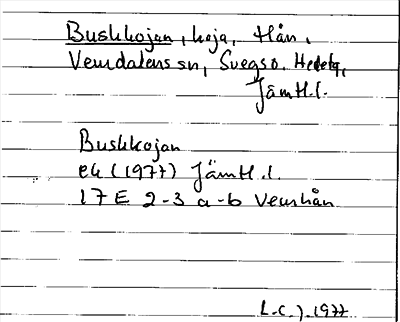 Buskkojan, koja, Hån,
Vemdalens sn, Svegs o. Hedetg,
Jämtl.l.
Buskkojan
ek (1977) Jämtl.l.
17 E 2-3 a-b Vemhån
L.C.J. 1977